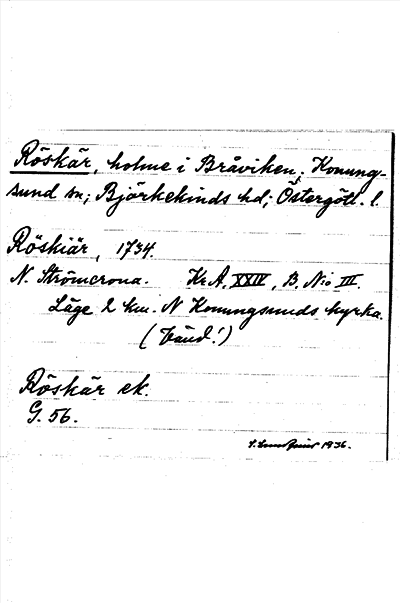 Röskär, holme i Bråviken, Konung-
sund sn; Björkekinds hd; Östergötl. l.
Röskiär, 1734.
N. Strömcrona. Kr A, XXIV, B. No III.
Läge 2 km. N Konungsunds kyrka.
(Länd!)
Röskär ek.
G. 56.
1936.